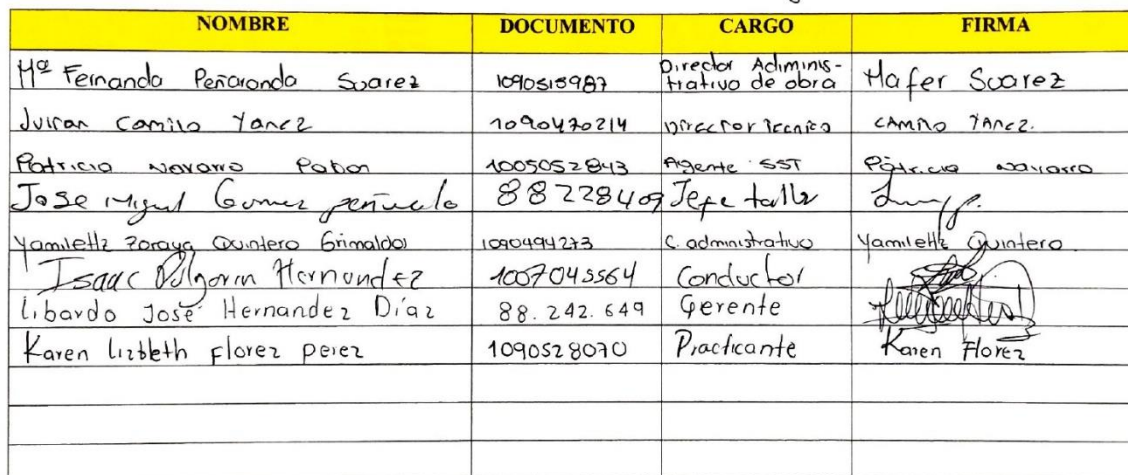 NOMBRE DOCUMENTO CARGO FIRMA
Mª Fernanda Peñaranda Suarez 1090515987 Director Adiminis-trativo de obra Mafer Suarez
Camilo Yanez 1090470214 Director Tecnico CAMILO YANEZ.
Patricia Navarro Pabon 1005052843 Agente SST Patricia Navarro
Jose Miguel Gomez peñuela 88228409 Jefe taller
Yamileth Zoraya Quintero Grimaldos 1090494273 C. administrativo Yamileth Quintero
Isaac Pulgarin Hernandez 1007045564 Conductor
Libardo José Hernandez Díaz 88.242.649 Gerente
Karen lizbleth florez perez 1090528070 Practicante Karen Florez